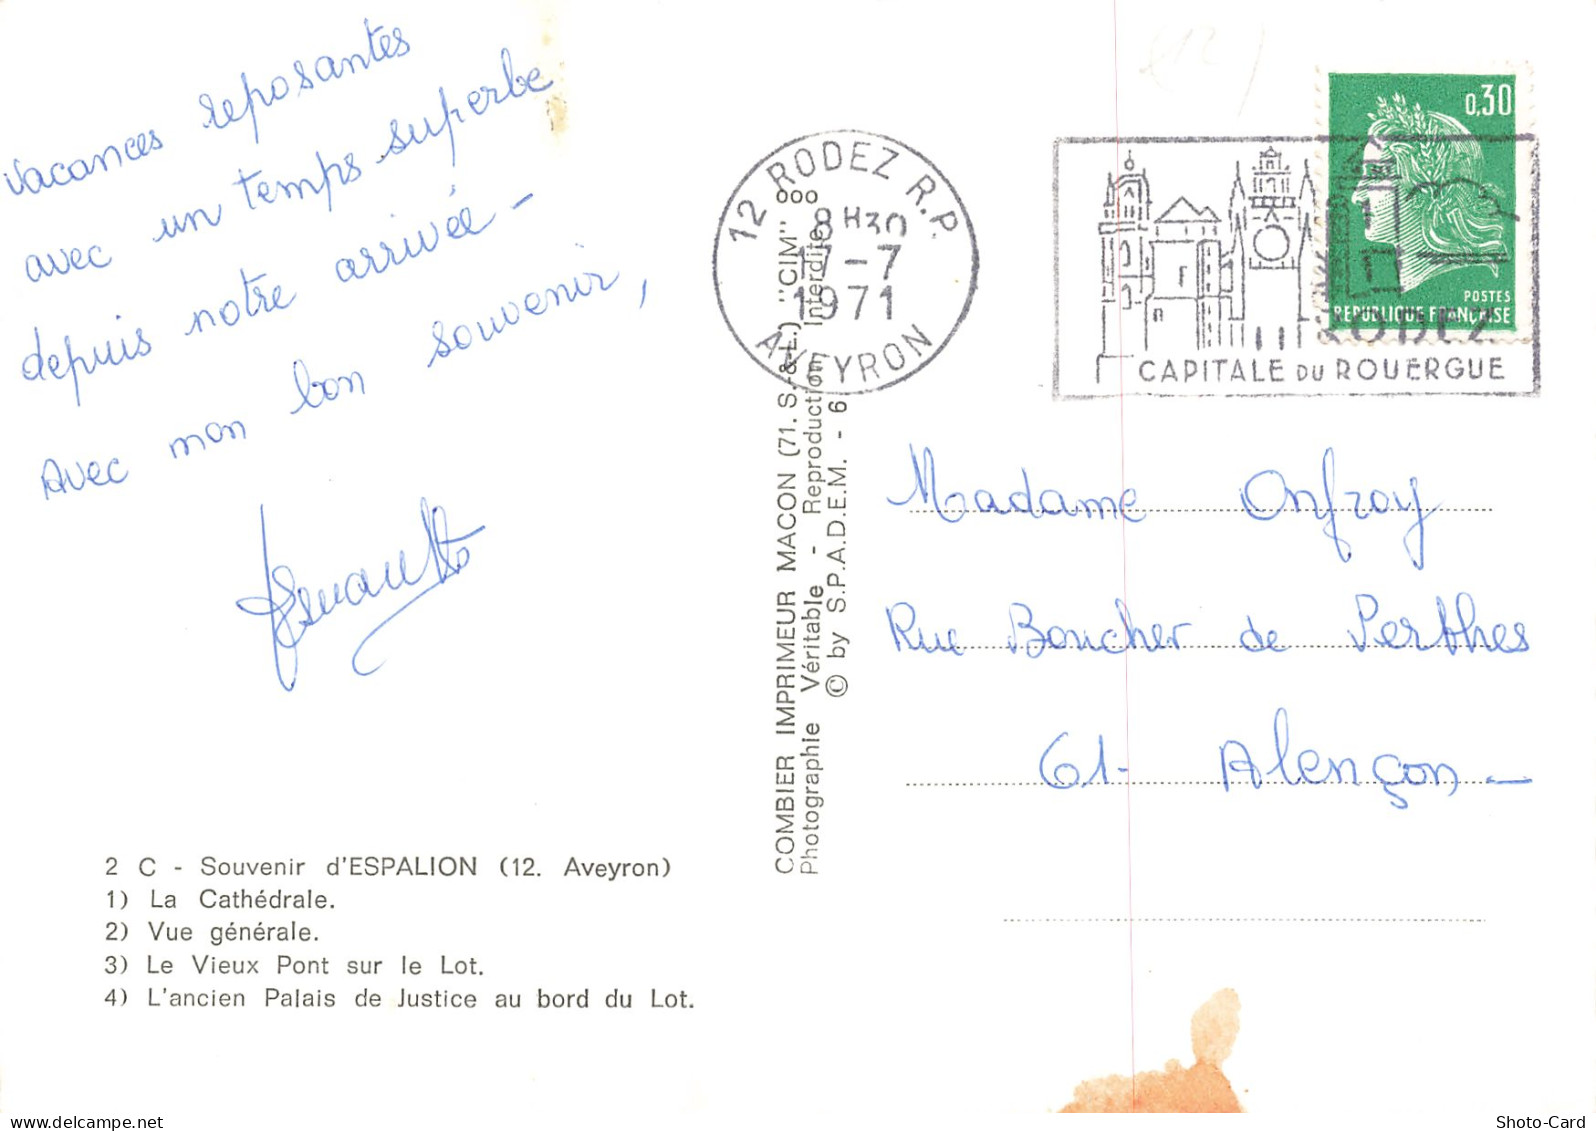 vacances reposantes
avec un temps superbe
depuis notre arrivée -
Avec mon bon souvenir,
2 C - Souvenir d'ESPALION (12. Aveyron)
1) La Cathédrale.
2) Vue générale.
3) Le Vieux Pont sur le Lot.
4) L'ancien Palais de Justice au bord du Lot.
COMBIER IMPRIMEUR MACON (71. S.-&-L.) "CIM"
Photographie Véritable - Reproduction Interdite
© by S.P.A.D.E.M. - 6
12 RODEZ R.P.
8H30
17-7
1971
AVEYRON
0,30
POSTES
REPUBLIQUE FRANÇAISE
RODEZ
CAPITALE DU ROUERGUE
Madame Onfroy
Rue Boucher de Perthes
61- Alençon -
Shoto-Card